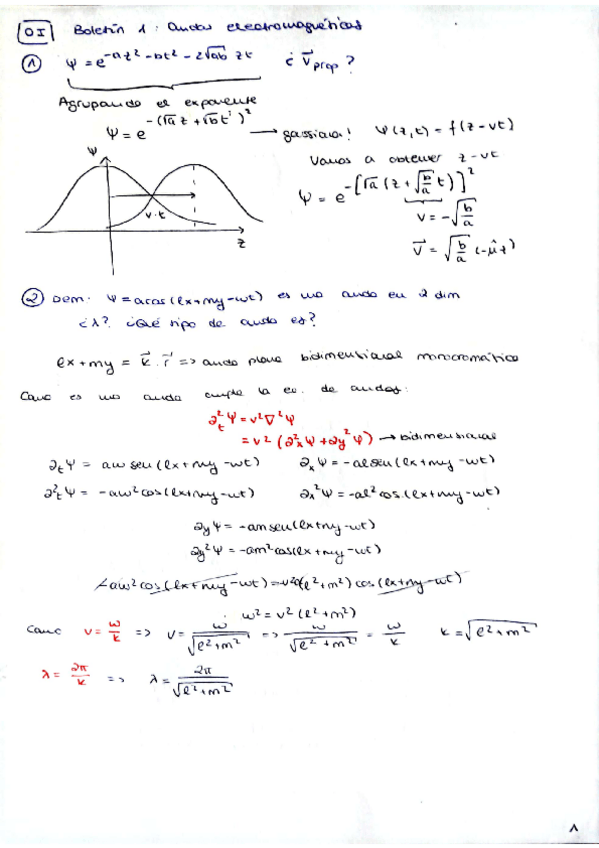 OI Boletín 1: Ondas electromagnéticas
① ψ = e^(-az² - bt² - 2√ab zt) ¿ v⃗prop ?
Agrupando el exponente
ψ = e^(-(√a z + √b t)²) → gaussiana! ψ(z,t) = f(z-vt)
Vamos a obtener z-vt
ψ = e^(-[√a (z + √(b/a) t)]²)
v = -√(b/a)
v⃗ = √(b/a) (-μ̂z)
ψ
v·t
z
② Dem: ψ = acos(lx+my-wt) es una onda en 2 dim
¿λ? ¿Qué tipo de onda es?
lx+my = k⃗ · r⃗ => onda plana bidimensional monocromática
Como es una onda cumple la ec. de ondas:
∂t²ψ = v²∇²ψ
= v² (∂x²ψ + ∂y²ψ) → bidimensional
∂tψ = aw sen(lx+my-wt) ∂xψ = -al sen(lx+my-wt)
∂t²ψ = -aw²cos(lx+my-wt) ∂x²ψ = -al²cos(lx+my-wt)
∂yψ = -am sen(lx+my-wt)
∂y²ψ = -am²cos(lx+my-wt)
-aw²cos(lx+my-wt) = -v²a(l²+m²)cos(lx+my-wt)
w² = v²(l²+m²)
Como v = w/k => v = w/√(l²+m²) => w/√(l²+m²) = w/k k = √(l²+m²)
λ = 2π/k => λ = 2π/√(l²+m²)
1